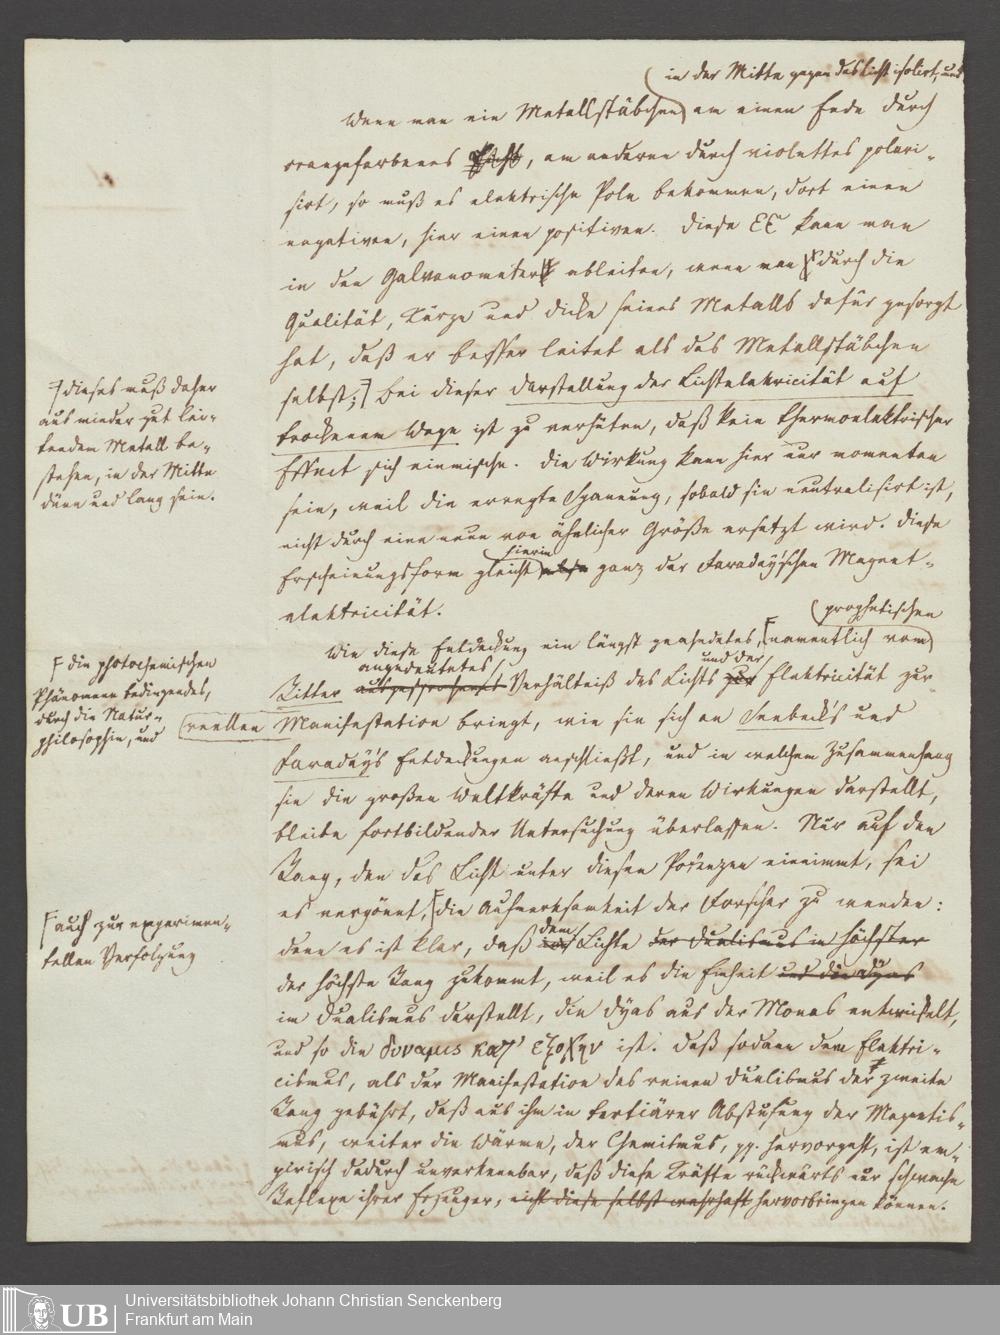 in der Mitte gegen das Licht isolirt, und
Wenn man ein Metallstäbchen am einen Ende durch
orangefarbenes Licht, am anderen durch violettes polari-
sirt, so muß es elektrische Pole bekommen, dort einen
negativen, hier einen positiven. Diese EE kann man
in den Galvanometer ableiten, wenn man durch die
Qualität, Kürze und Dicke seines Metalls dafür gesorgt
hat, daß er besser leitet als das Metallstäbchen
selbst; Bei dieser Darstellung der Lichtelektricität auf
trockenem Wege ist zu verhüten, daß kein thermoelektrischer
Effect sich einmische. Die Wirkung kann hier nur momentan
sein, weil die erregte Spannung, sobald sie neutralisirt ist,
nicht durch eine neue von ähnlicher Größe ersetzt wird. Diese
hierin
Erscheinungsform gleicht also ganz der Faraday'schen Magnet-
elektricität.
dieses muß daher
aus wieder gut lei-
tendem Metall be-
stehen, in der Mitte
dünn und lang sein.
prophetischen
Wie diese Entdeckung ein längst geahndetes, namentlich vom
angedeutetes und der
Ritter ausgesprochenes Verhältniß des Lichts zur Elektricität zur
reellen Manifestation bringt, wie sie sich an Seebeck's und
Faraday's Entdeckungen anschließt, und in welchem Zusammenhang
sie die großen Weltkräfte und deren Wirkungen darstellt,
bleibe fortbildender Untersuchung überlassen. Nur auf den
Rang, den das Licht unter diesen Potenzen einnimmt, sei
es vergönnt, die Aufmerksamkeit der Forscher zu wenden:
dem
denn es ist klar, daß das Lichte der Dualismus in höchster
der höchste Rang zukommt, weil es die Einheit und die Dyas
im Dualismus darstellt, die Dyas aus der Monas entwickelt,
und so die δυναμις κατ' εξοχην ist. Daß sodann dem Elektri-
cismus, als der Manifestation des reinen Dualismus der zweite
Rang gebührt, daß aus ihm in tertiärer Abstufung der Magnetis-
mus, weiter die Wärme, der Chemismus, pp. hervorgeht, ist em-
pirisch dadurch unverkennbar, daß diese Kräfte rückwärts nur schwache
Reflexe ihrer Erzeuger, nicht diese selbst wahrhaft hervorbringen können.
die photochemischen
Phänomene bedingendes,
durch die Natur-
philosophie, und
auch zur experimen-
tellen Verfolgung
UB
Universitätsbibliothek Johann Christian Senckenberg
Frankfurt am Main